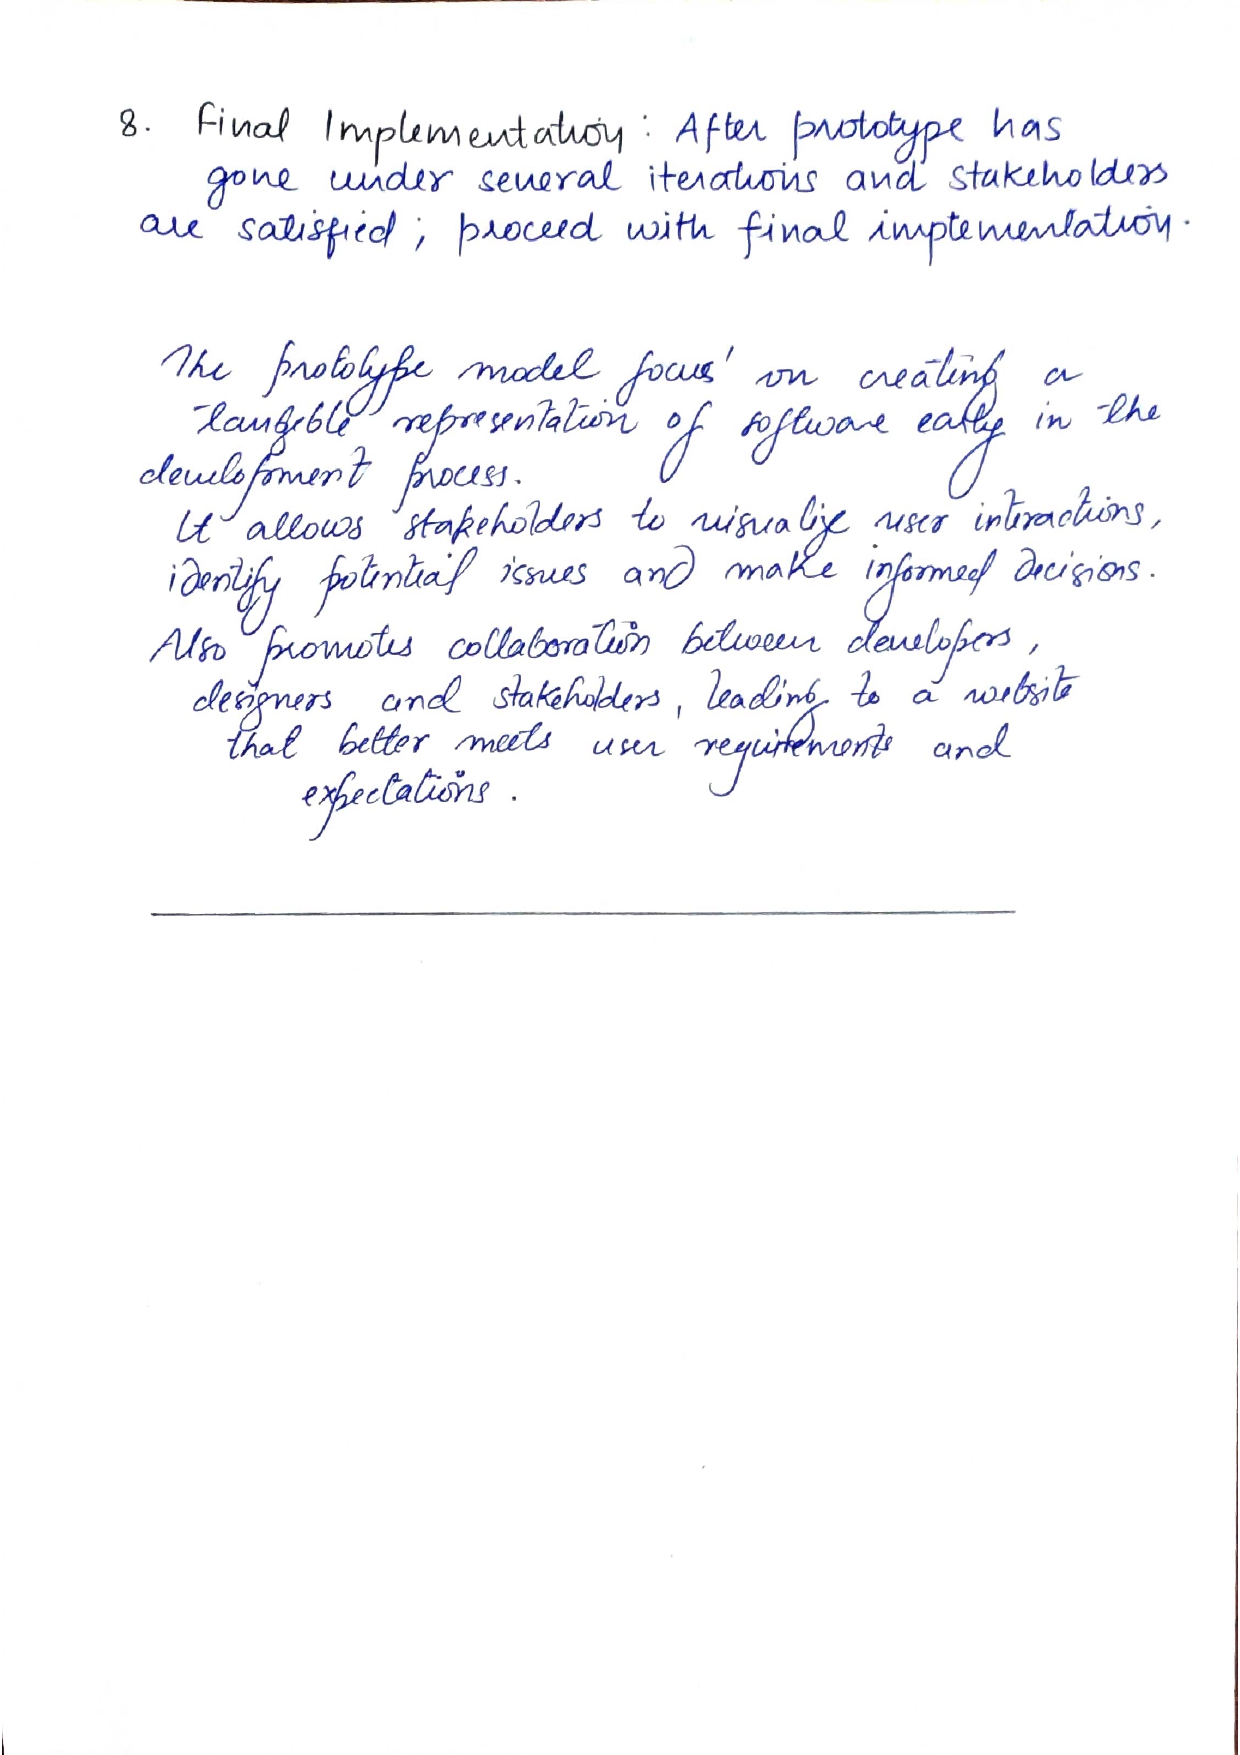 8. Final Implementation : After prototype has
gone under several iterations and stakeholders
are satisfied ; proceed with final implementation.
The prototype model focus' on creating a
tangible representation of software early in the
development process.
It allows stakeholders to visualize user interactions,
identify potential issues and make informed decisions.
Also promotes collaboration between developers,
designers and stakeholders, leading to a website
that better meets user requirements and
expectations.